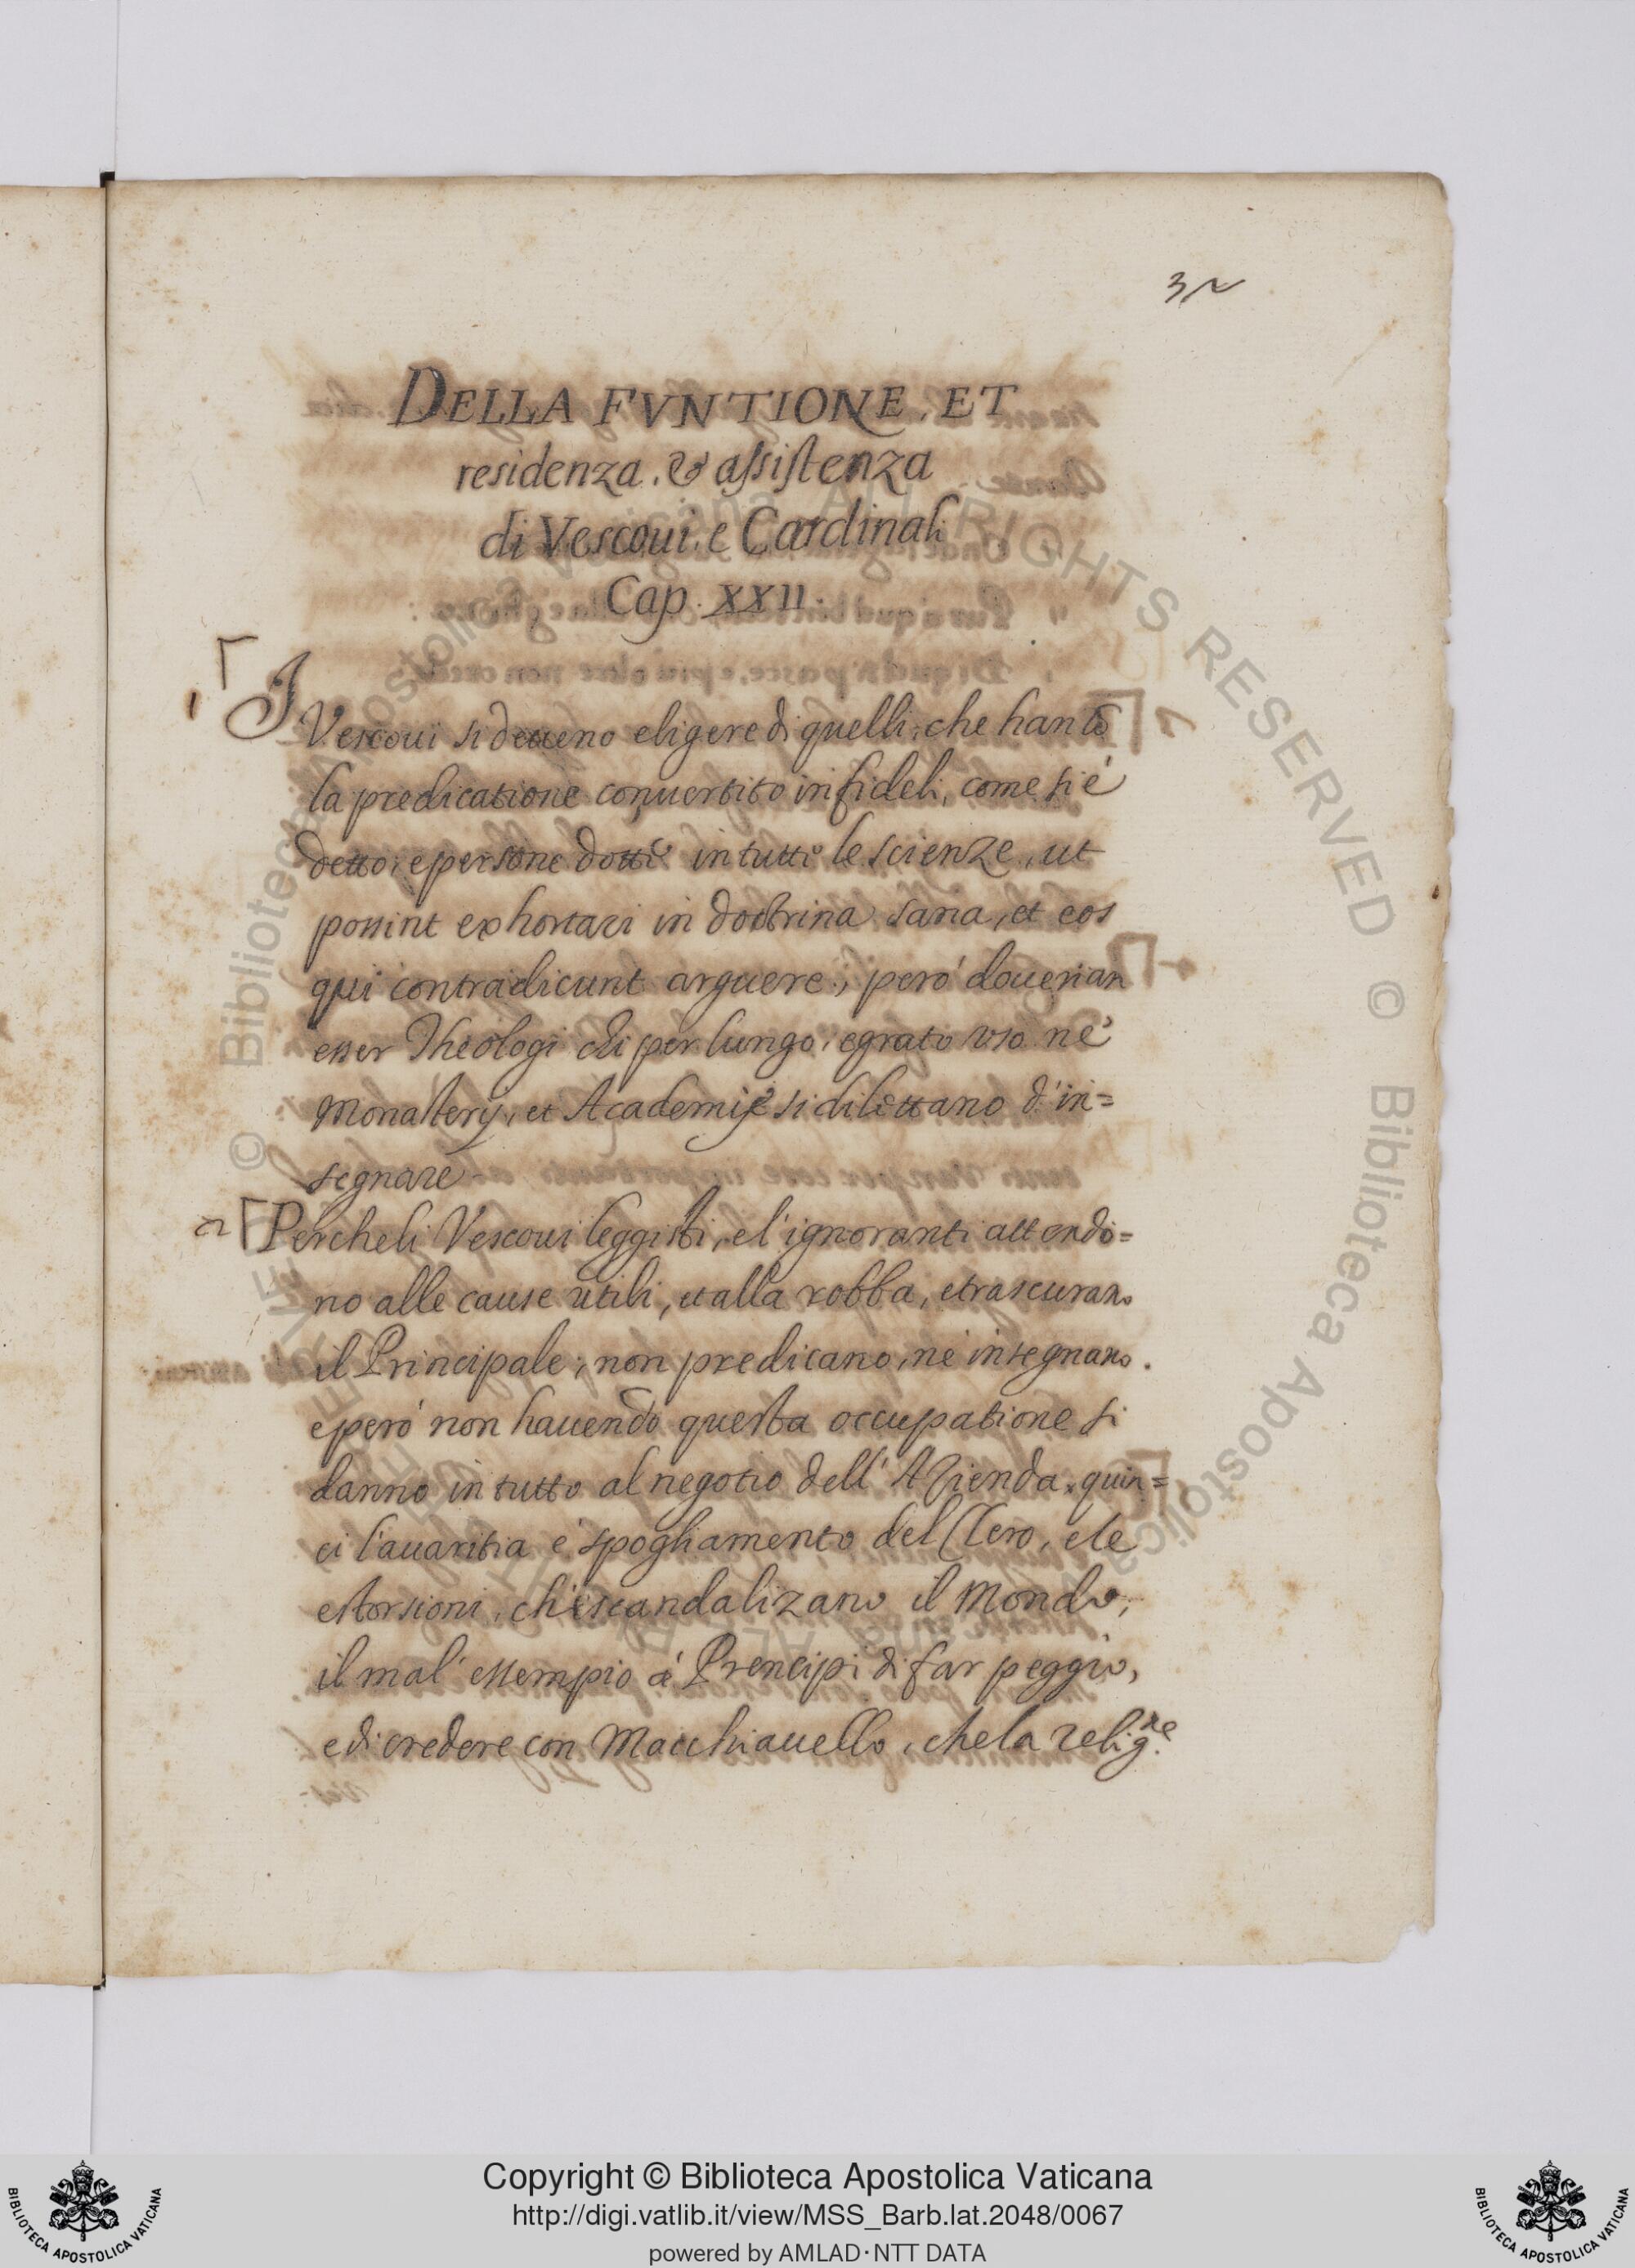 32
DELLA FVNTIONE, ET
residenza, & assistenza
di Vescoui, e Cardinali
Cap. XXII.
I Vescoui si deueno eligere di quelli, che han cō
la predicatione conuertito infideli, come si è
detto, e persone dotte in tutte le scienze, ut
possint exhortari in doctrina sana, et eos
qui contradicunt arguere; però douerian
esser Theologi chi per lungo, e grato uso ne'
Monasterij, et Academije si dilettano d'in=
segnare
2 Perche li Vescoui leggisti, e l'ignoranti attendo=
no alle cause utili, et alla robba, e trascurano
il Principale; non predicano, nè insegnano.
e però non hauendo questa occupatione si
danno in tutto al negotio dell'Azienda, quin=
ci l'auaritia e' spogliamento del Clero, e le
estorsioni, ch'escandalizano il Mondo,
il mal' essempio à Prencipi di far peggio,
e di credere con Macchiauello, che la relig.ne
© Biblioteca Apostolica Vaticana ALL RIGHTS RESERVED
Copyright © Biblioteca Apostolica Vaticana
http://digi.vatlib.it/view/MSS_Barb.lat.2048/0067
powered by AMLAD·NTT DATA
BIBLIOTECA APOSTOLICA VATICANA
BIBLIOTECA APOSTOLICA VATICANA